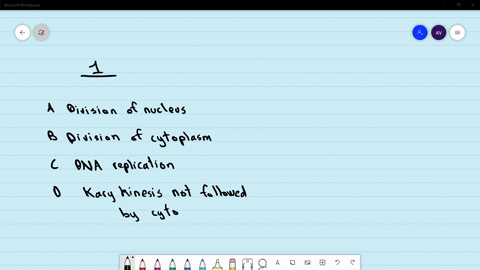 Microsoft Whiteboard
AV
1
A Division of nucleus
B Division of cytoplasm
C DNA replication
D Kary kinesis not followed
by cyto